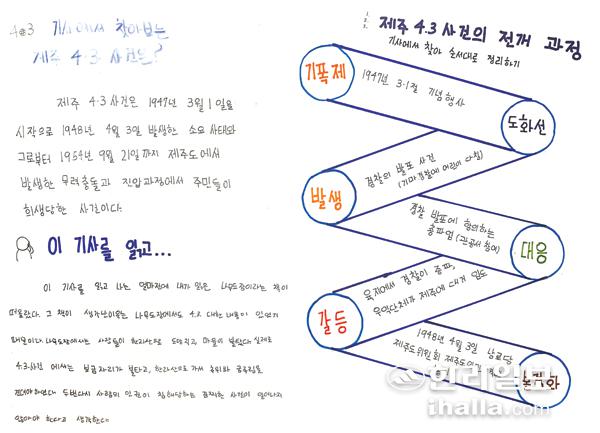 4·3 기사에서 찾아보는
제주 4·3 사건은?
제주 4·3 사건은 1947년 3월 1일을
시작으로 1948년 4월 3일 발생한 소요사태와
그로부터 1954년 9월 21일까지 제주도에서
발생한 무력충돌과 진압과정에서 주민들이
희생당한 사건이다.
이 기사를 읽고...
이 기사를 읽고 나는 엄마전에 내가 읽은 나무도장이라는 책이
떠올랐다. 그 책이 생각난 이유는 나무도장에서도 4.3 대한 내용이 있었기
때문이다. 나무도장에서는 사람들이 한라산으로 도망치고, 마을이 불탔다. 실제로
4.3사건 에서는 보금자리가 불타고, 한라산으로 가서 추위와 굶주림을
견뎌야하였다. 두번다시 사람의 인권이 침해당하는 끔찍한 사건이 일어나지
않아야 한다고 생각한다.
1. 2. 3. 제주 4.3 사건의 전개 과정
기사에서 찾아 순서대로 정리하기
기폭제
1947년 3·1절 기념행사
도화선
경찰의 발포 사건
(기마경찰에 어린이 다침)
발생
경찰 발포에 항의하는
총파업 (관공서 참여)
대응
육지에서 경찰이 증파,
우익단체가 제주에 대거 입도
갈등
1948년 4월 3일 남로당
제주도위원회
한라일보
ihalla.com